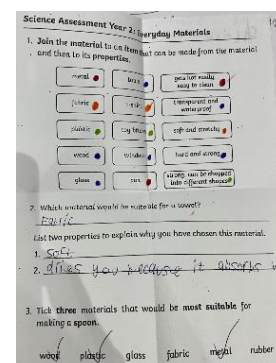 Science Assessment Year 2: Everyday Materials
1. Join the material to an item that can be made from the material
and then to its properties.
metal
gets hot easily
easy to clean
fabric
transparent and
waterproof
plastic
toy
soft and stretchy
wood
window
hard and strong
glass
strong, can be shaped
into different shapes
2. Which material would be suitable for a towel?
Fabric
List two properties to explain why you have chosen this material.
1. Soft
2. dries you because it absorbs
3. Tick three materials that would be most suitable for
making a spoon.
wood plastic glass fabric metal rubber